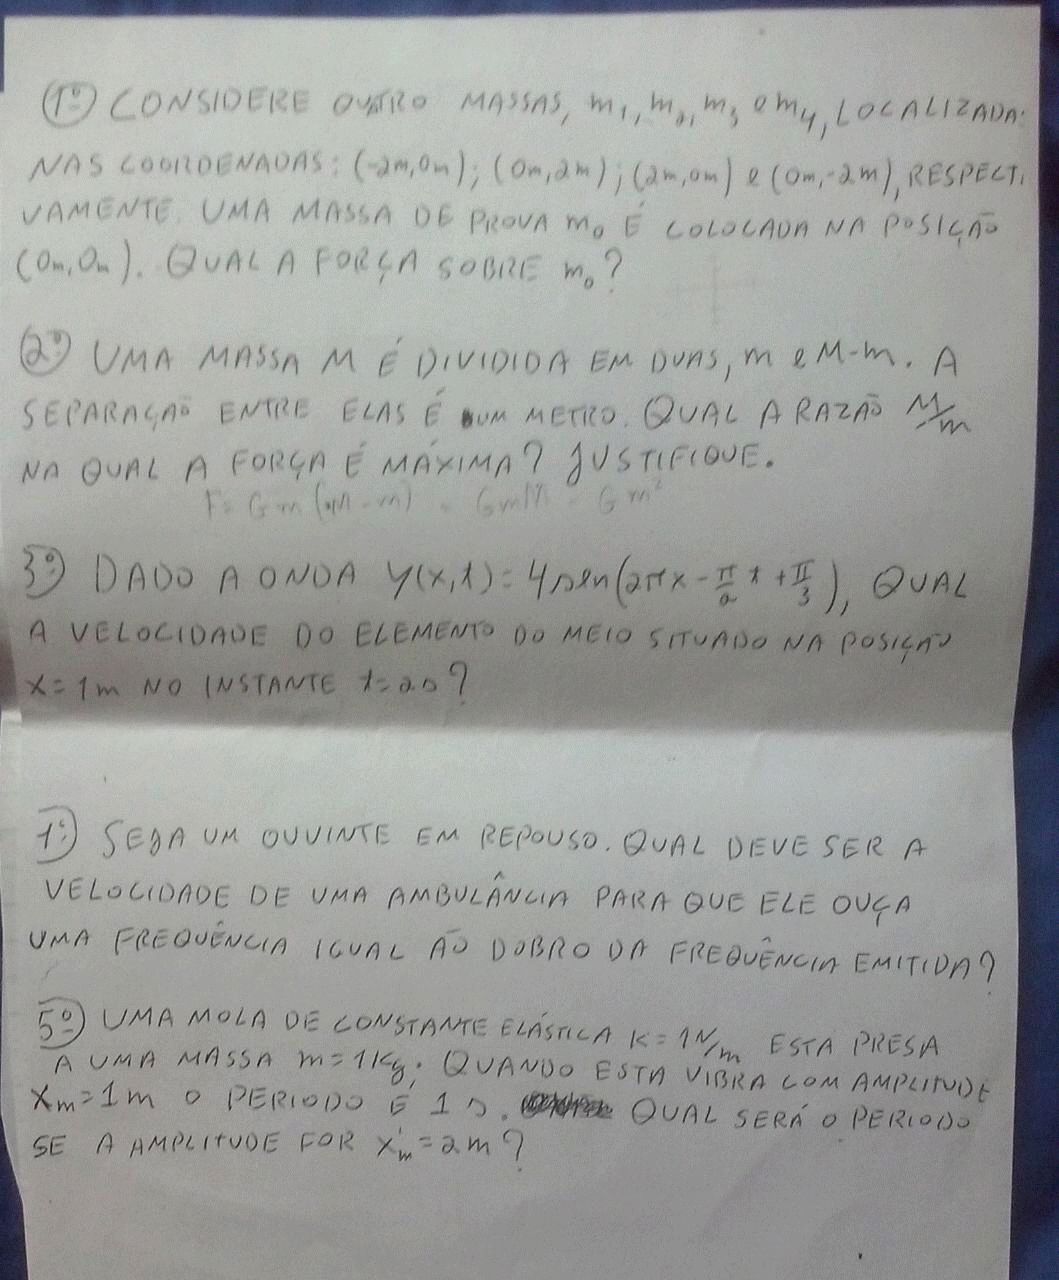 1º) CONSIDERE QUATRO MASSAS, m₁, m₂, m₃ e m₄, LOCALIZADAS
NAS COORDENADAS: (-2m,0m); (0m,2m); (2m,0m) e (0m,-2m), RESPECTI
VAMENTE. UMA MASSA DE PROVA m₀ É COLOCADA NA POSIÇÃO
(0m,0m). QUAL A FORÇA SOBRE m₀?
2º) UMA MASSA M É DIVIDIDA EM DUAS, m e M-m. A
SEPARAÇÃO ENTRE ELAS É UM METRO. QUAL A RAZÃO M/m
NA QUAL A FORÇA É MÁXIMA? JUSTIFIQUE.
F = Gm(M-m) = GmM - Gm²
3º) DADO A ONDA y(x,t)=4sen(2πx - π/2 t + π/3), QUAL
A VELOCIDADE DO ELEMENTO DO MEIO SITUADO NA POSIÇÃO
X=1m NO INSTANTE t=2s?
1º) SEJA UM OUVINTE EM REPOUSO. QUAL DEVE SER A
VELOCIDADE DE UMA AMBULÂNCIA PARA QUE ELE OUÇA
UMA FREQUÊNCIA IGUAL AO DOBRO DA FREQUÊNCIA EMITIDA?
5º) UMA MOLA DE CONSTANTE ELÁSTICA K=1N/m ESTA PRESA
A UMA MASSA m=1Kg. QUANDO ESTA VIBRA COM AMPLITUDE
Xm=1m O PERIODO E 1s. QUAL SERÁ O PERIODO
SE A AMPLITUDE FOR X'm=2m?